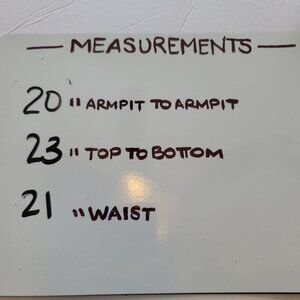 — MEASUREMENTS —
20 " ARMPIT TO ARMPIT
23 " TOP TO BOTTOM
21 " WAIST